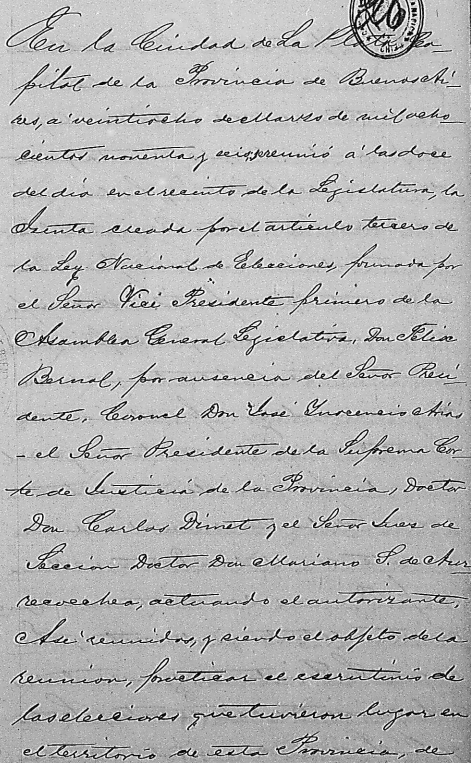 En la Ciudad de La Plata, Ca
pital de la Provincia de Buenos Ai-
res, a veintiocho de Marzo de mil ocho
cientos noventa y seis, reunió á las doce
del dia en el recinto de la Legislatura, la
Junta creada por el articulo tercero de
la Ley Nacional de Elecciones, formada por
el Señor Vice Presidente primero de la
Asamblea General Legislativa, Don Felix
Bernal, por ausencia del Señor Presi
dente, Coronel Don José Inocencio Arias
- el Señor Presidente de la Suprema Cor-
te de Justicia de la Provincia, Doctor
Don Carlos Dimet y el Señor Juez de
Seccion Doctor Don Mariano S. de Aur
recoechea, actuando el autorizante,
Asi reunidos, y siendo el objeto de la
reunion, practicar el escrutinio de
las elecciones que tuvieron lugar en
el territorio de esta Provincia, de